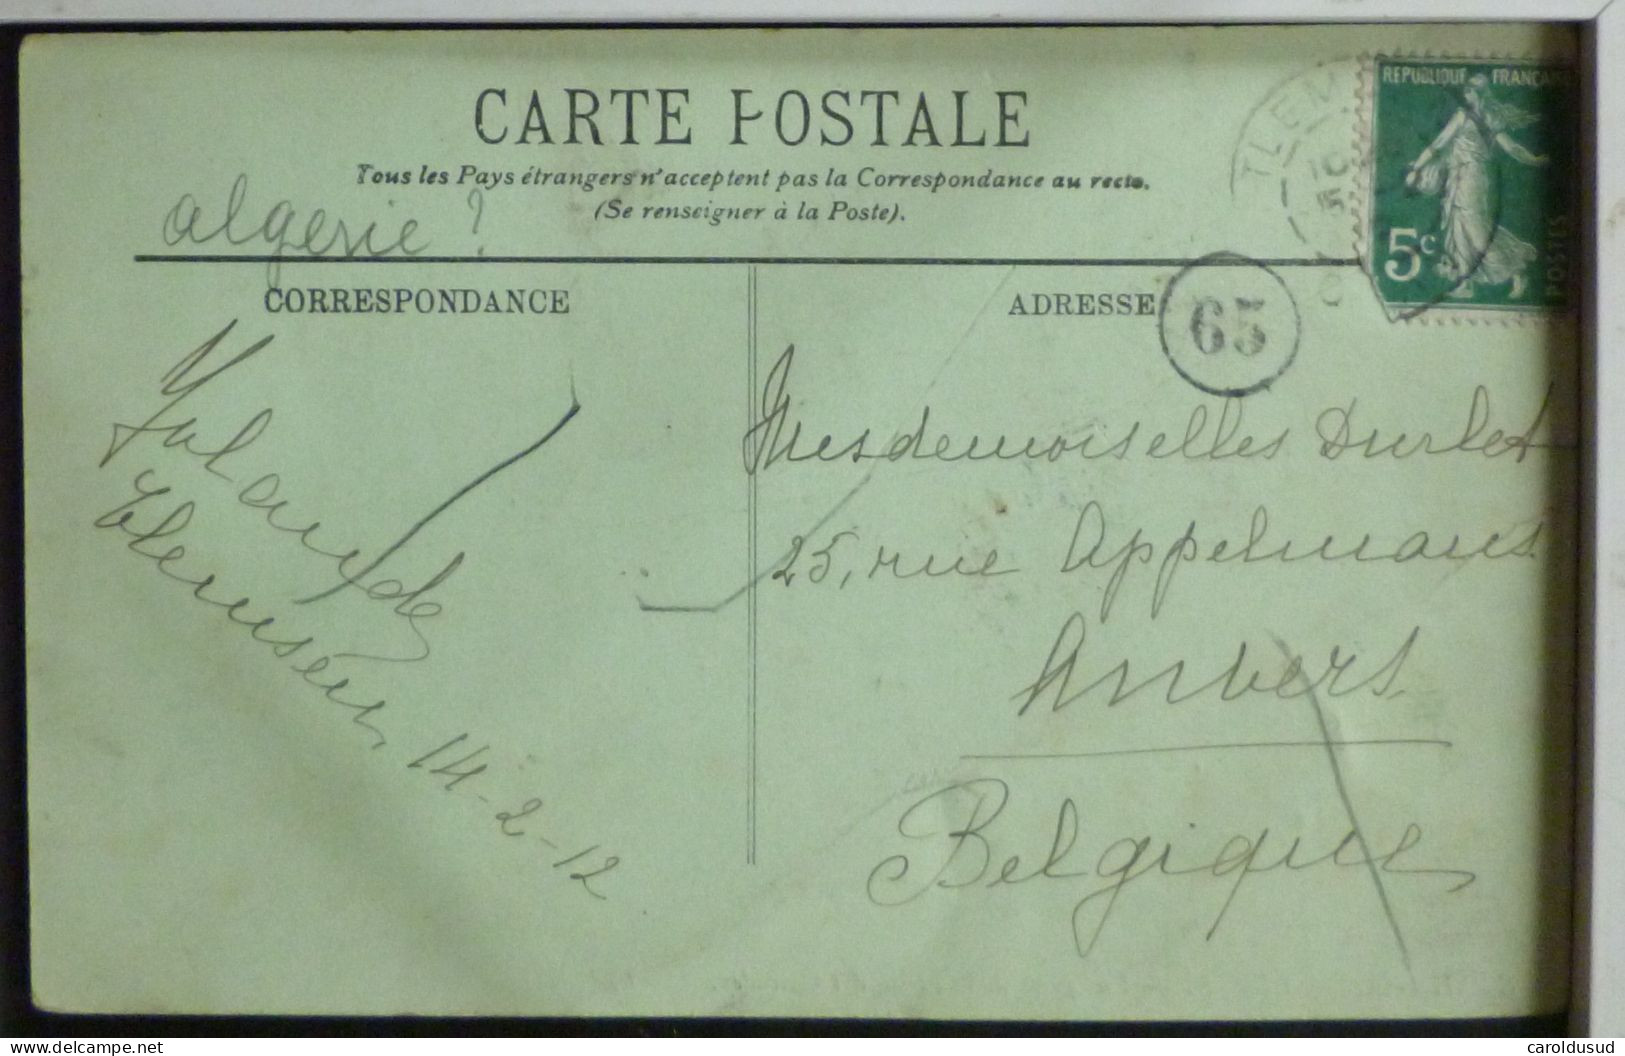 CARTE POSTALE
Tous les Pays étrangers n'acceptent pas la Correspondance au recto.
(Se renseigner à la Poste).
algerie ?
CORRESPONDANCE
ADRESSE
65
REPUBLIQUE FRANCAISE
5c
POSTES
TLEM
Yolande
Tlemsen 14-2-12
Mesdemoiselles Durlet
25, rue Appelmans
Anvers
Belgique
delcampe.net
caroldusud